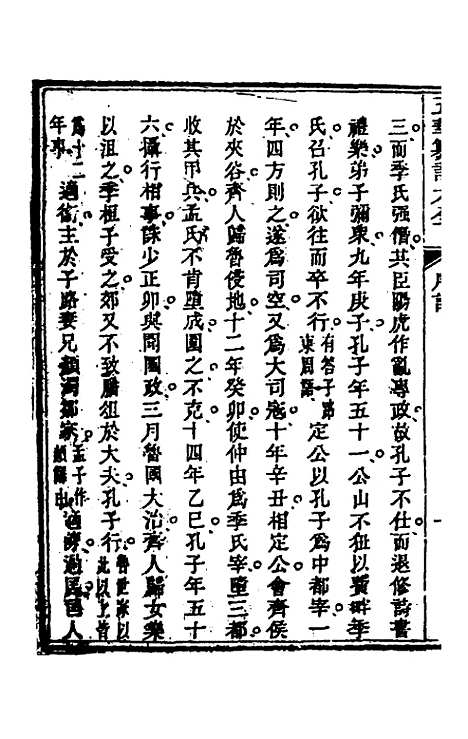 三而季氏强僭其臣陽虎作亂專政故孔子不仕而退修詩書
禮樂弟子彌眾九年庚子孔子年五十一公山不狃以費畔季
氏召孔子欲往而卒不行有答子路東周語定公以孔子爲中都宰一
年四方則之遂爲司空又爲大司寇十年辛丑相定公會齊侯
於夾谷齊人歸魯侵地十二年癸卯使仲由爲季氏宰墮三都
收其甲兵孟氏不肯墮成圍之不克十四年乙巳孔子年五十
六攝行相事誅少正卯與聞國政三月魯國大治齊人歸女樂
以沮之季桓子受之郊又不致膰俎於大夫孔子行魯世家以此以上皆
爲十二年事適衛主於子路妻兄顏濁鄒家孟子作顏讎由適陳過匡匡人